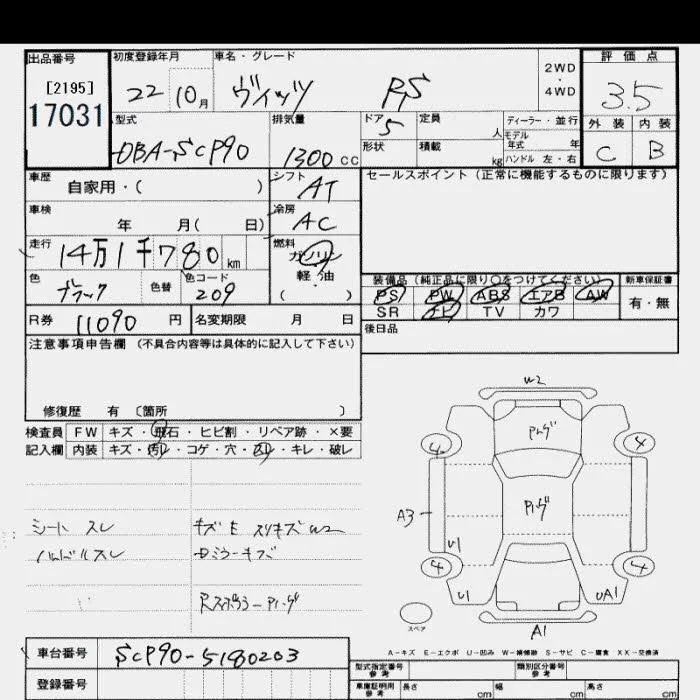 出品番号 初度登録年月 車名・グレード 2WD 評価点
[2195] 22 10月 ヴィッツ RS ・ 3.5
17031 4WD
型式 排気量 ドア 定員 人 ディーラー・並行 外装 内装
DBA-SCP90 1300cc 5 モデル年式 年 C B
形状 積載 kg ハンドル 左・右
車歴 自家用・( ) シフト AT セールスポイント(正常に機能するものに限ります)
車検 年 月( 日) 冷房 AC
走行 14万1千780km 燃料 ガソリン
色 ブラック 色替 色コード 209 軽・油 ( )
装備品(純正品に限り○をつけてください) 新車保証書
PS PW ABS エアB AW 有・無
SR ナビ TV カワ
R券 11090円 名変期限 月 日 後日品
注意事項申告欄(不具合内容等は具体的に記入して下さい)
修復歴 有 〔箇所 〕
検査員 FW キズ・飛石・ヒビ割・リペア跡・×要
記入欄 内装 キズ・汚れ・コゲ・穴・凹・キレ・破レ
シート スレ キズE スリキズ W2
ハンドルスレ
W2
4 4
A3 U1
4 4
U1 UA1
スペア A1
A-キズ E-エクボ U-凹み W-補修跡 S-サビ C-腐食 XX-交換済
車台番号 SCP90-5180203
登録番号
型式指定番号 参考 類別区分番号 参考
車庫証明用 参考 長さ cm 幅 cm 高さ cm